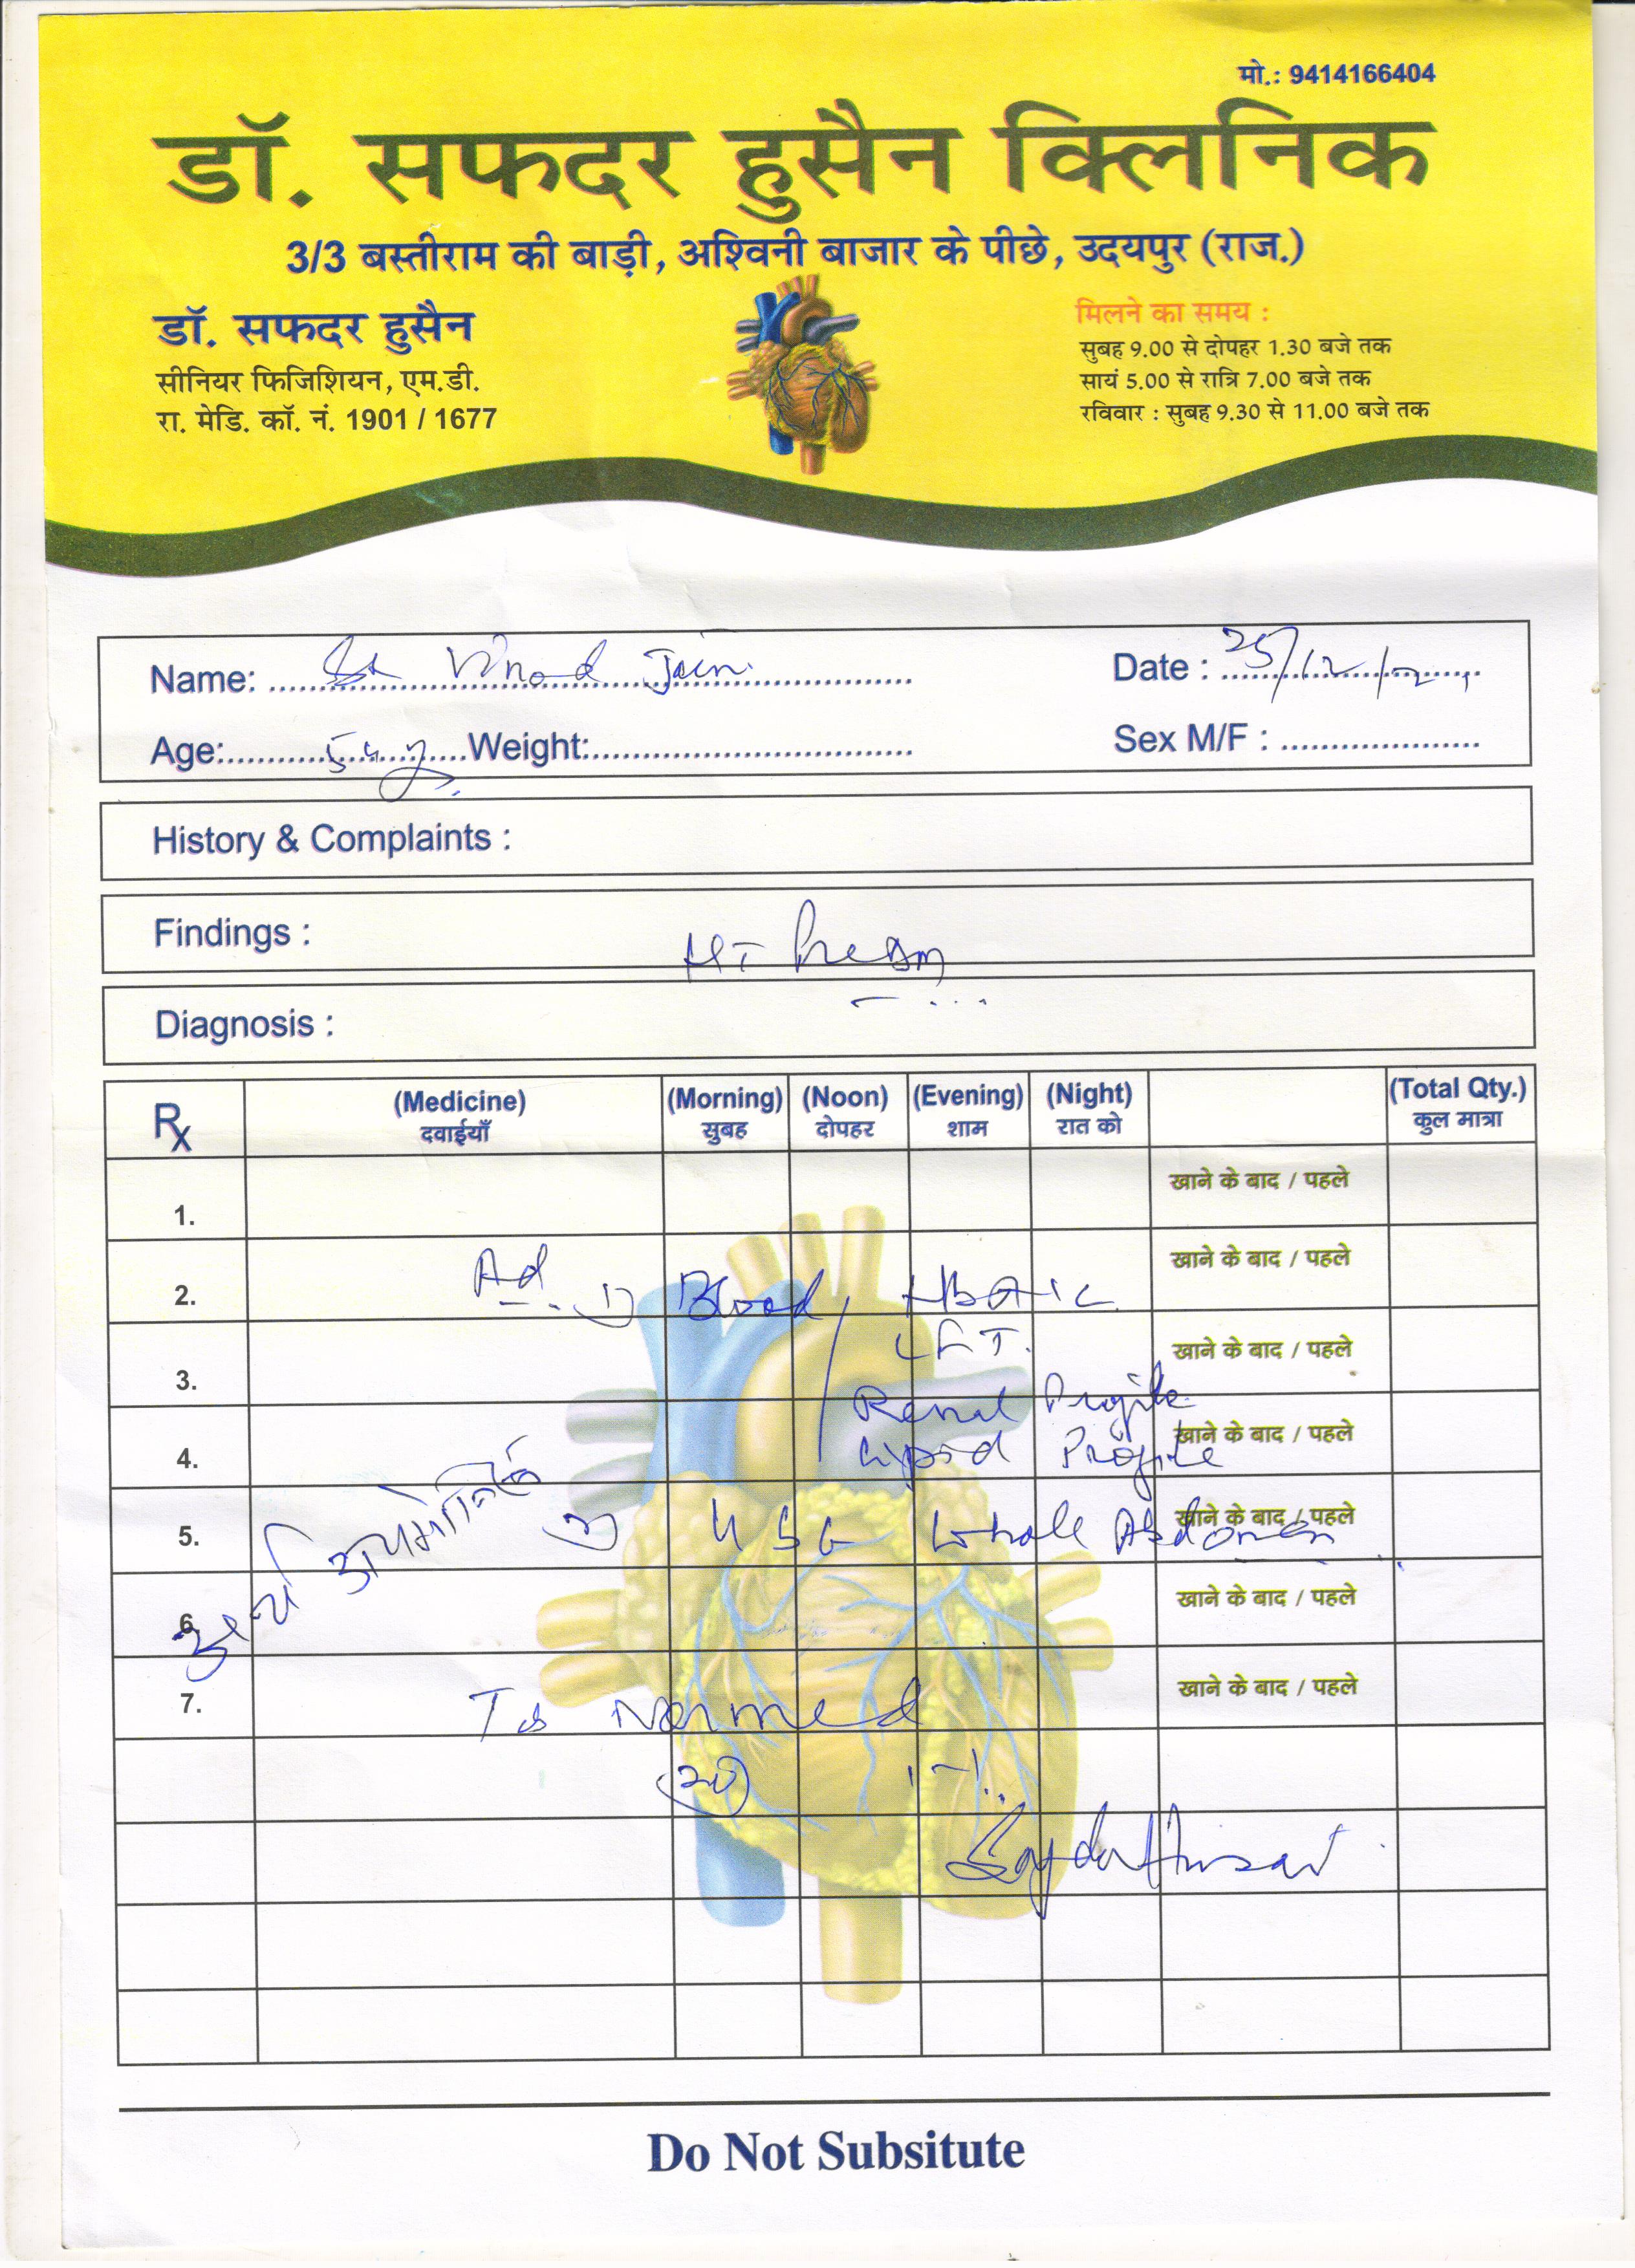 मो.: 9414166404
डॉ. सफदर हुसैन क्लिनिक
3/3 बस्तीराम की बाड़ी, अश्विनी बाजार के पीछे, उदयपुर (राज.)
डॉ. सफदर हुसैन
सीनियर फिजिशियन, एम.डी.
रा. मेडि. कॉ. नं. 1901 / 1677
मिलने का समय :
सुबह 9.00 से दोपहर 1.30 बजे तक
सायं 5.00 से रात्रि 7.00 बजे तक
रविवार : सुबह 9.30 से 11.00 बजे तक
Name: Vinod Jain Date : 25/12/21
Age: Weight: Sex M/F :
History & Complaints :
Findings : HT
Diagnosis :
Rx (Medicine) (Morning) (Noon) (Evening) (Night) (Total Qty.)
दवाईयाँ सुबह दोपहर शाम रात को कुल मात्रा
1. खाने के बाद / पहले
2. Ad 1) Blood HbA1c खाने के बाद / पहले
3. LFT. खाने के बाद / पहले
Renal Profile
4. Lipid Profile खाने के बाद / पहले
5. 2) USG Whole Abdomen खाने के बाद / पहले
6. खाने के बाद / पहले
7. खाने के बाद / पहले
Do Not Subsitute